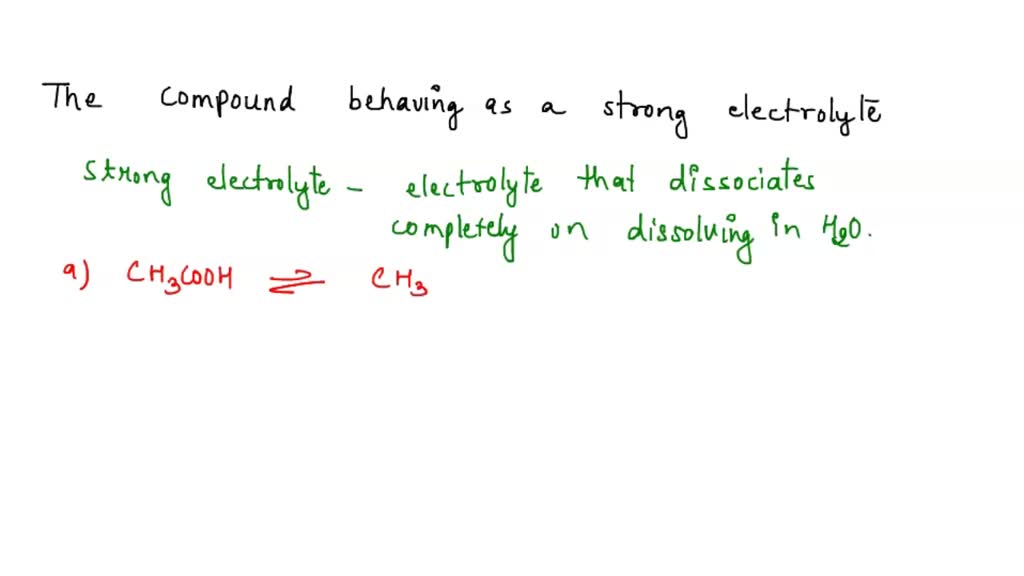 The compound behaving as a strong electrolyte
strong electrolyte - electrolyte that dissociates
completely on dissolving in H2O.
a) CH3COOH ⇌ CH3